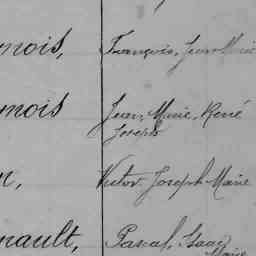 nois, François, Jean Marie
nois Jean, Marie, René
Joseph
n, Victor Joseph Marie
nault, Pascal, Isaac
Marie